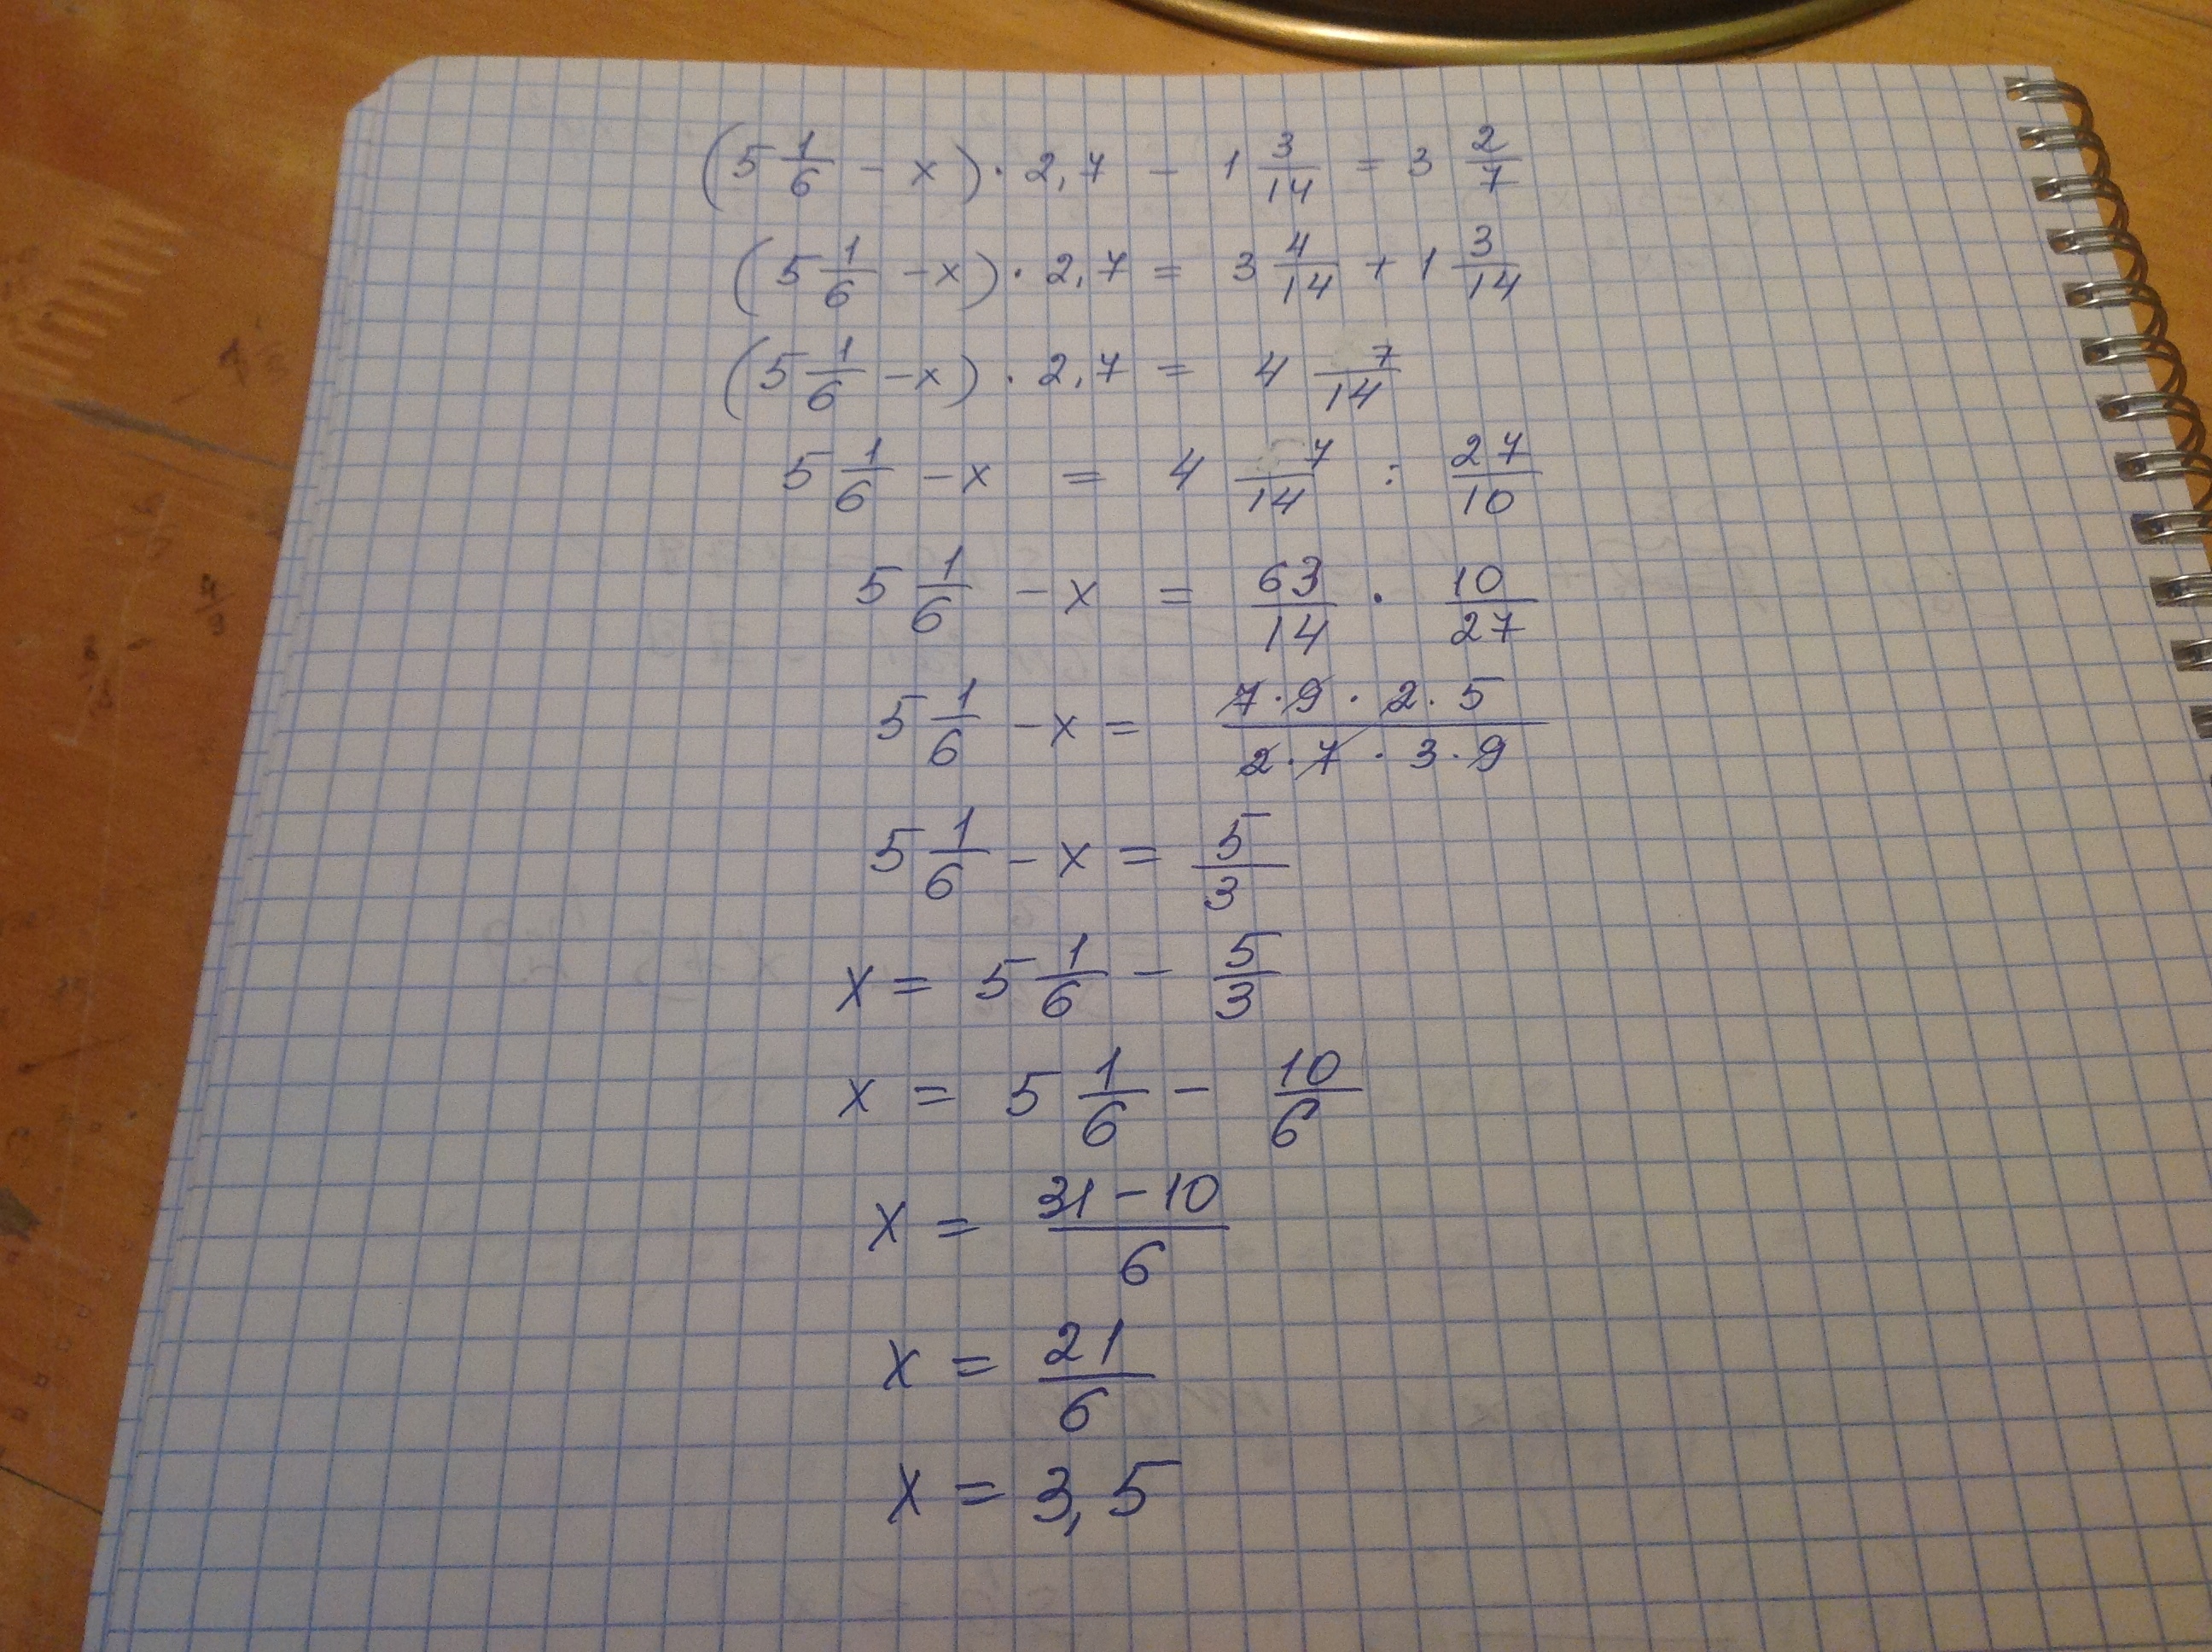 (5 1/6 - x) · 2,7 - 1 3/14 = 3 2/7
(5 1/6 - x) · 2,7 = 3 4/14 + 1 3/14
(5 1/6 - x) · 2,7 = 4 7/14
5 1/6 - x = 4 7/14 : 27/10
5 1/6 - x = 63/14 · 10/27
5 1/6 - x = 7·9·2·5/2·7·3·9
5 1/6 - x = 5/3
x = 5 1/6 - 5/3
x = 5 1/6 - 10/6
x = 31-10/6
x = 21/6
x = 3,5